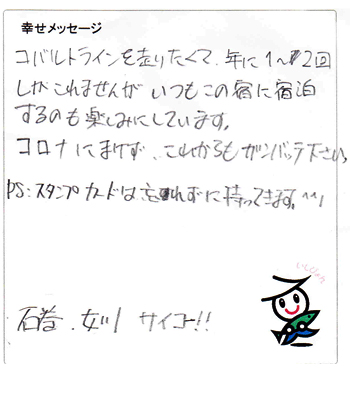 幸せメッセージ
コバルトラインを走りたくて、年に1〜2回
しかこれませんが いつもこの宿に宿泊
するのも楽しみにしています。
コロナにまけず、これからもガンバッテ下さい。
PS:スタンプカードは忘れずに持ってきます。^^)
石巻、女川 サイコー!!